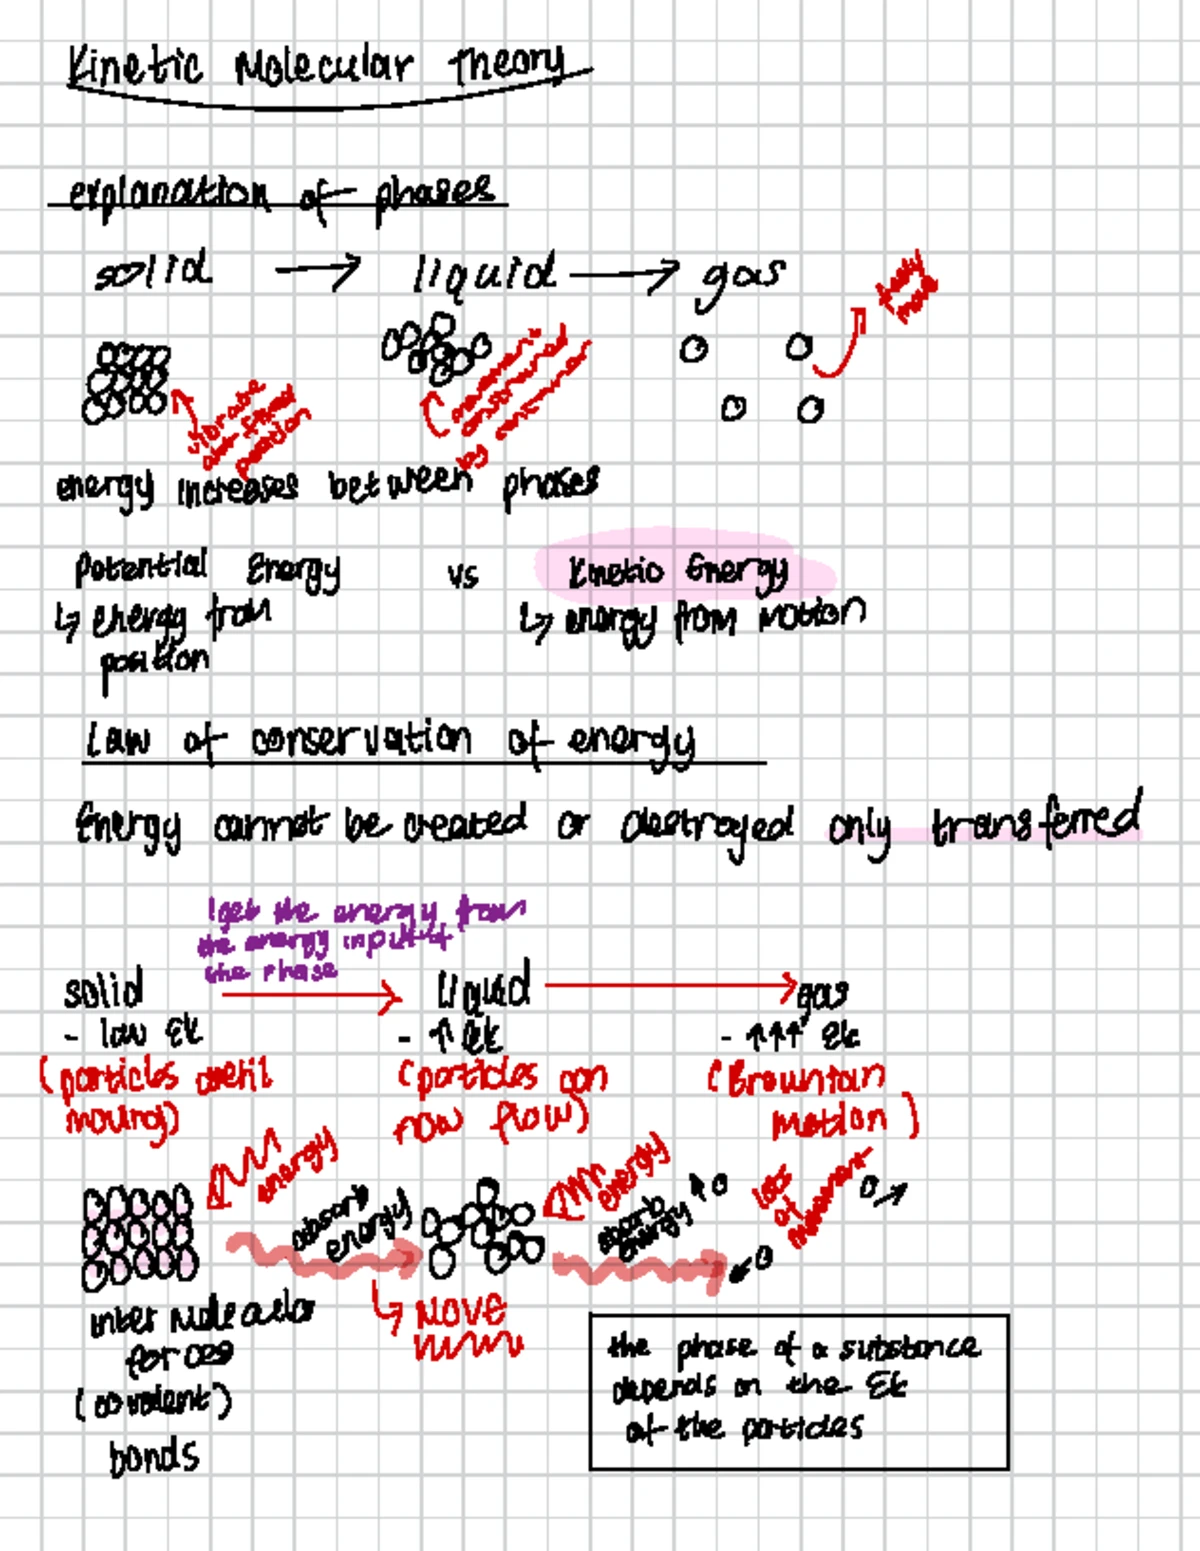 Kinetic Molecular Theory
explanation of phases
solid → liquid → gas
freely
move
vibrate
over fixed
position
movement is
constrained
by container
energy increases between phases
Potential Energy vs Kinetic Energy
↳ energy from
position
↳ energy from motion
Law of conservation of energy
Energy cannot be created or destroyed only transferred
! get the energy from
the energy input of
the phase
solid → liquid → gas
- low Ek
- ↑ Ek
- ↑↑↑ Ek
(particles
moving)
(particles can
now flow)
(Brountain
motion)
energy
absorb
energy
↳ MOVE
energy
absorb
energy
lots
of
movement
inter molecular
forces
(covalent)
bonds
the phase of a substance
depends on the Ek
of the particles